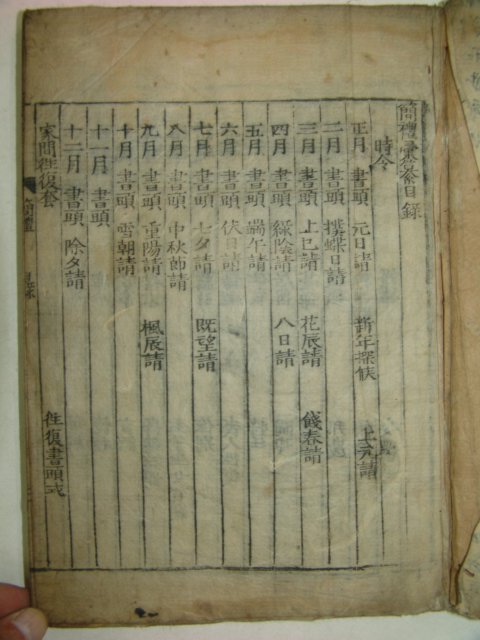 簡禮彙纂目錄
時令
正月 書頭 元日請 新年探候 上元請
二月 書頭 撲蝶日請
三月 書頭 上巳請 花辰請 餞春請
四月 書頭 綠陰請 八日請
五月 書頭 端午請
六月 書頭 伏日請
七月 書頭 七夕請 既望請
八月 書頭 中秋節請
九月 書頭 重陽請 楓辰請
十月 書頭 雪朝請
十一月 書頭
十二月 書頭 除夕請
家間徃復套 徃復書頭式
簡禮 目錄